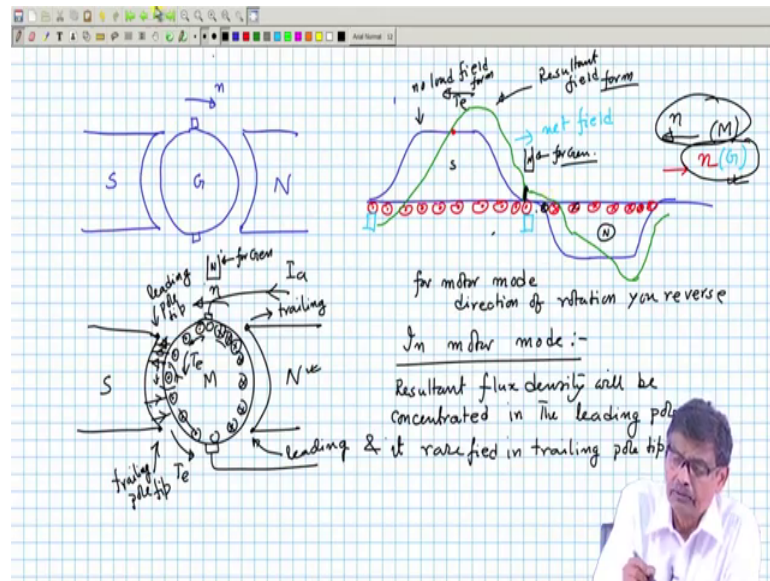 Arial Normal 12
n
S
G
N
no load field form
Te
Resultant field form
net field
N for Gen.
S
n (M)
n (G)
N
N for Gen
leading pole tip
n
Ia
trailing
Te
S
M
N
trailing pole tip
Te
leading
for motor mode
direction of rotation you reverse
In motor mode :-
Resultant flux density will be
concentrated in The leading pole
& it rarefied in trailing pole tip